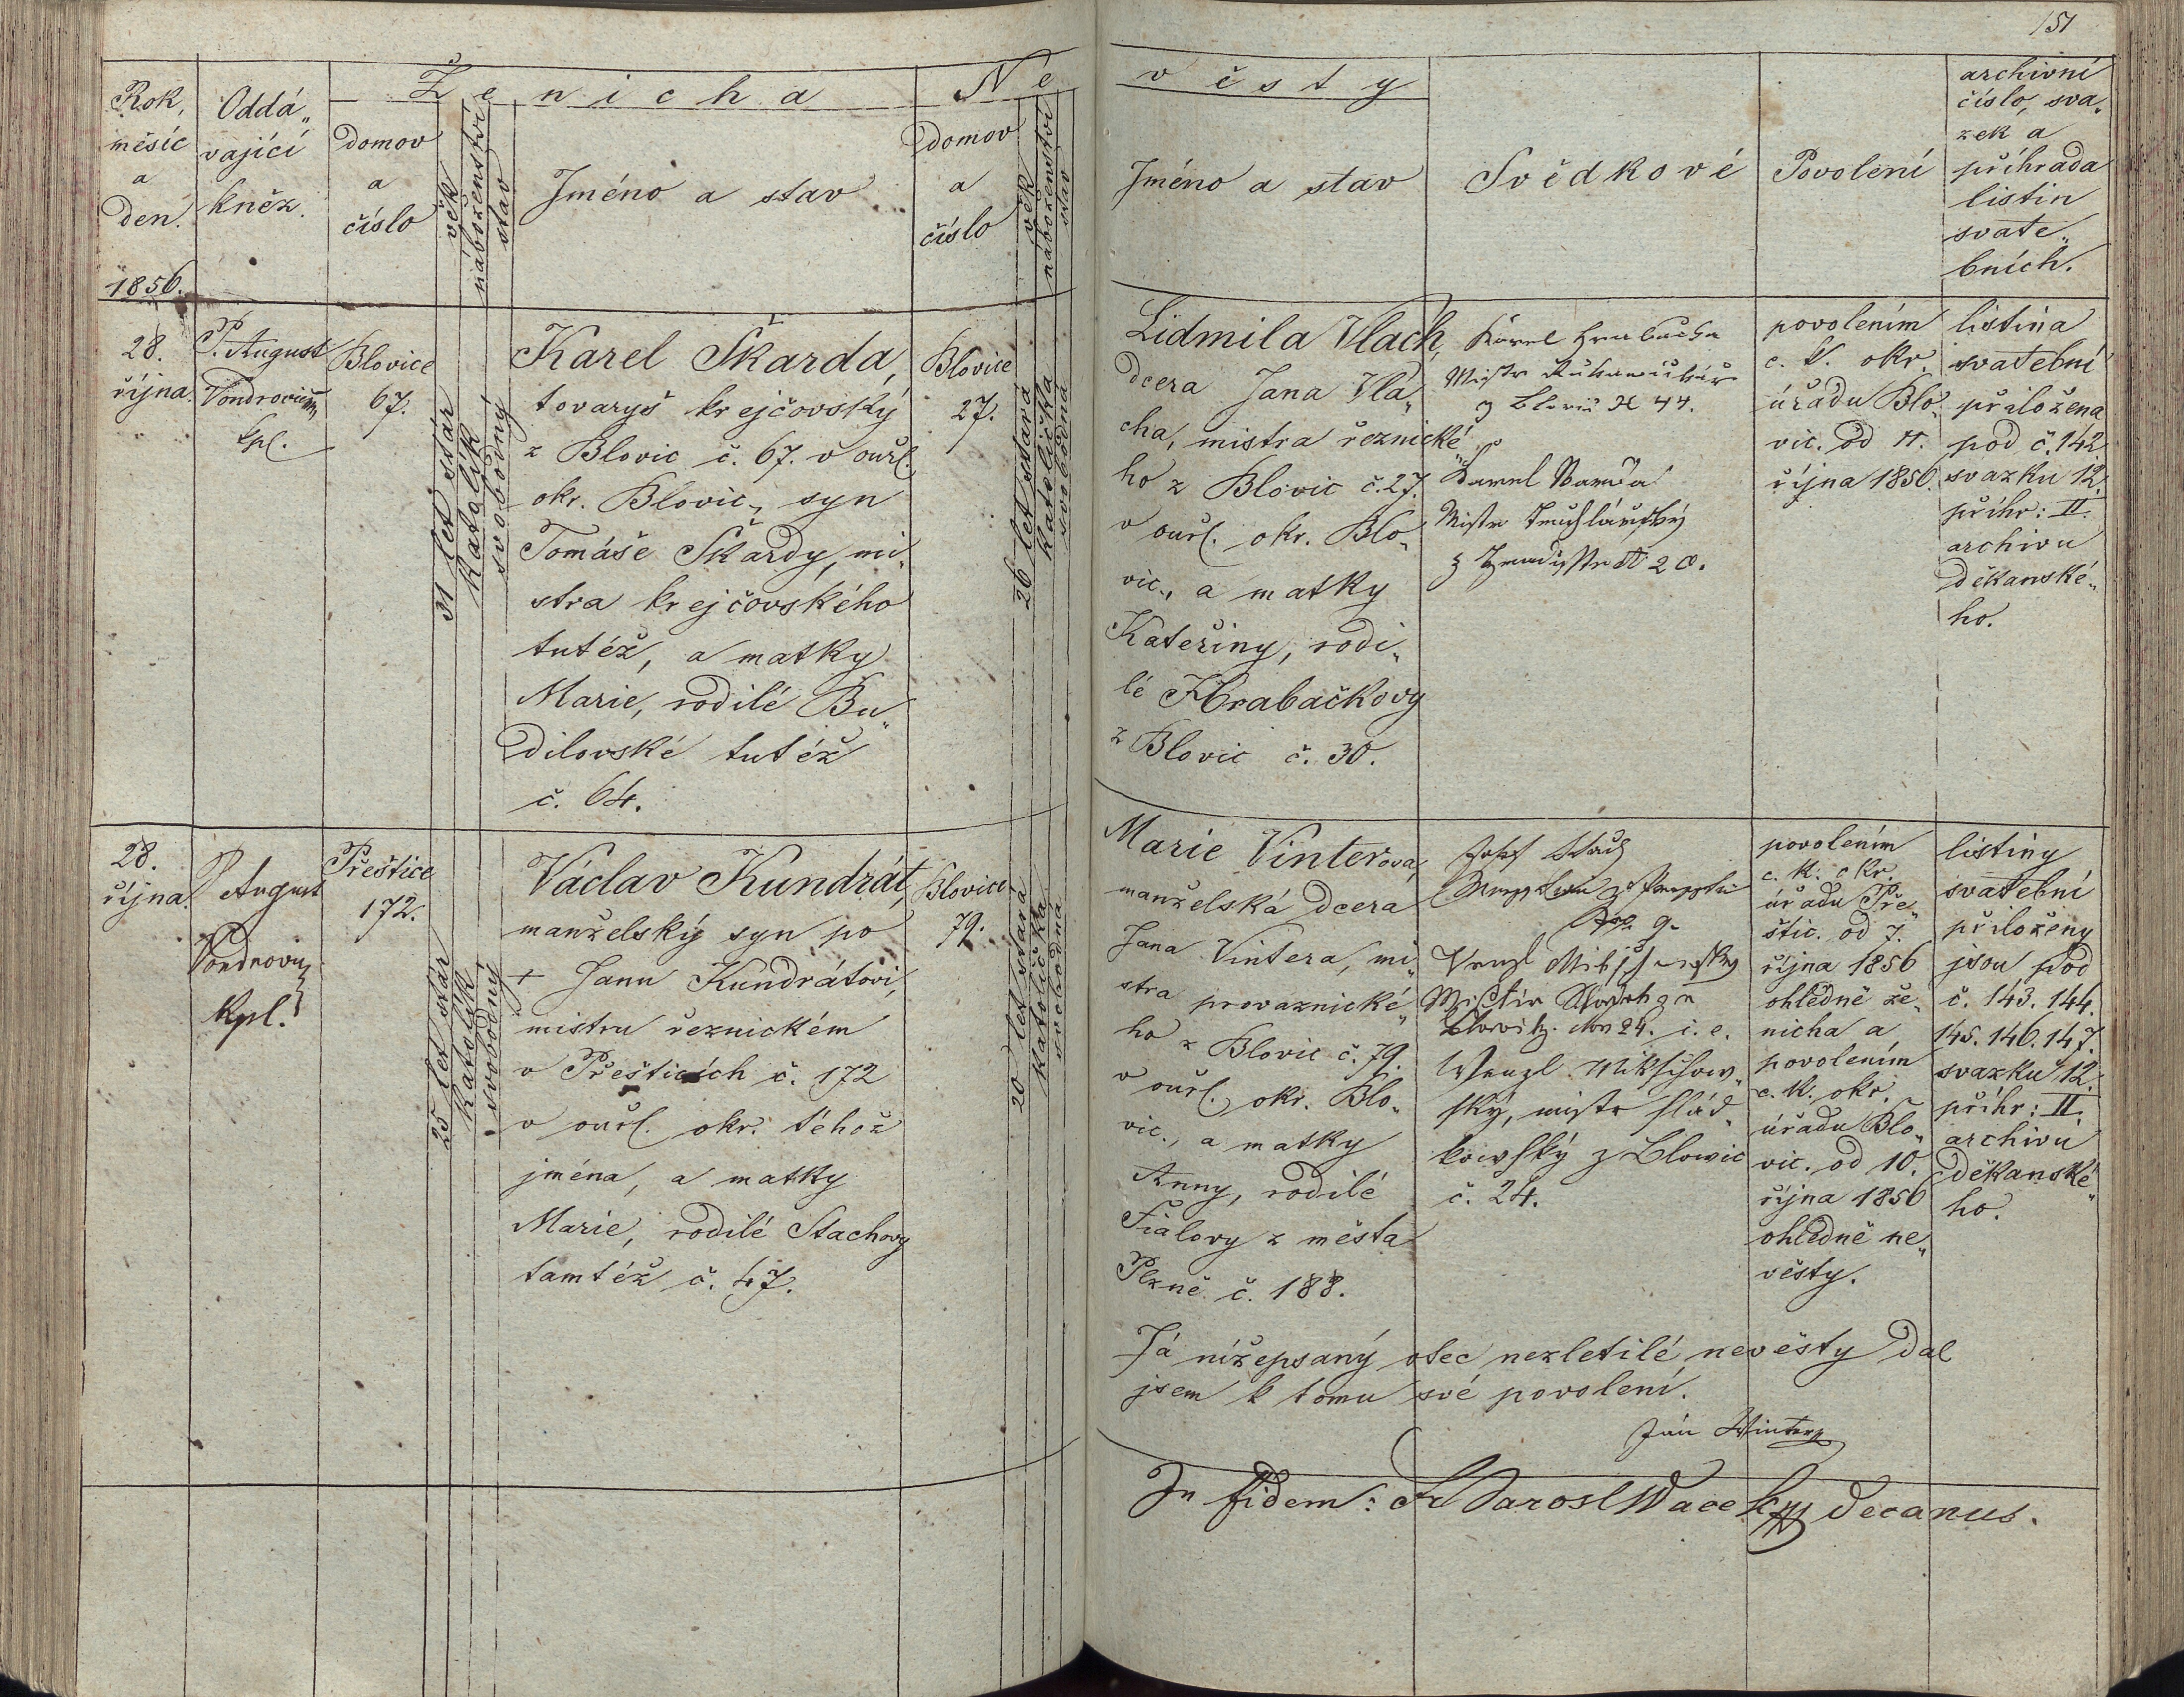 151
Ženicha
Nevěsty
Rok,
měsíc
a
den.
1856.
Oddá„
vající
kněz.
domov
a
číslo
věk
náboženství
stav
Jméno a stav
domov
a
číslo
věk
náboženství
stav
Jméno a stav
Svědkové
Povolení
archivní
číslo, sva„
zek a
příhrada
listin
svate„
bních.
28.
října.
P. August
kpl.
Blovice
67.
31 let stár
katolík
svobodný
Karel Škarda,
tovaryš krejčovský
z Blovic č. 67. v ouřl.
okr. Blovic., syn
Tomáše Škardy, mi„
stra krejčovského
tutéž, a matky
Marie, rodilé Bu„
dilovské tutéž
č. 64.
Blovice
27.
26 let stará
katolička
svobodná
Lidmila Vlach,
dcera Jana Vla„
cha, mistra řeznické„
ho z Blovic č. 27.
v ouřl. okr. Blo„
vic., a matky
Kateřiny, rodi„
lé Hrabačkovy
z Blovic č. 30.
Karel
Mistr
z Blowic N 44.
Karel
Mistr Truhlářský
N 20.
povolením
c. k. okr.
úřadu Blo„
vic. od 11.
října 1856.
listina
svatební
přiložena
pod č. 142
svazku 12.
příhr: II.
archivu
děkanské„
ho.
28.
října.
P August
Kpl.
Přeštice
172.
25 let stár
katolík
svobodný
Václav Kundrát,
manželský syn po
+ Janu Kundrátovi,
mistru řeznickém
v Přešticích č. 172
v ouřl. okr. téhož
jména, a matky
Marie, rodilé Stachovy
tamtéž č. 47.
Blovice
79.
20 let stará
katolička
svobodná
Marie Vinterova,
manželská dcera
Jana Vintera, mi„
stra provaznické„
ho z Blovic č. 79.
v ouřl. okr. Blo„
vic., a matky
Anny, rodilé
Fialovy z města
Plzně č. 188.
Josef Stach
9.
Wenzl
Blowitz. Nro 24. i. e.
Wenzl Mikschow„
ský, mistr slád„
kowský z Blowic
č. 24.
povolením
c. k. okr.
úřadu Pře„
štic. od 7.
října 1856
ohledně že„
nicha a
povolením
c. k. okr.
úřadu Blo„
vic. od 10.
října 1856
ohledně ne„
věsty.
listiny
svatební
přiloženy
jsou pod
č. 143. 144.
145. 146. 147.
svazku 12.
příhr: II.
archivu
děkanské„
ho.
Já nížepsaný otec nezletilé nevěsty dal
jsem k tomu své povolení.
Jan Winter
In fidem: Fr Jarosl Wacek mp decanus.